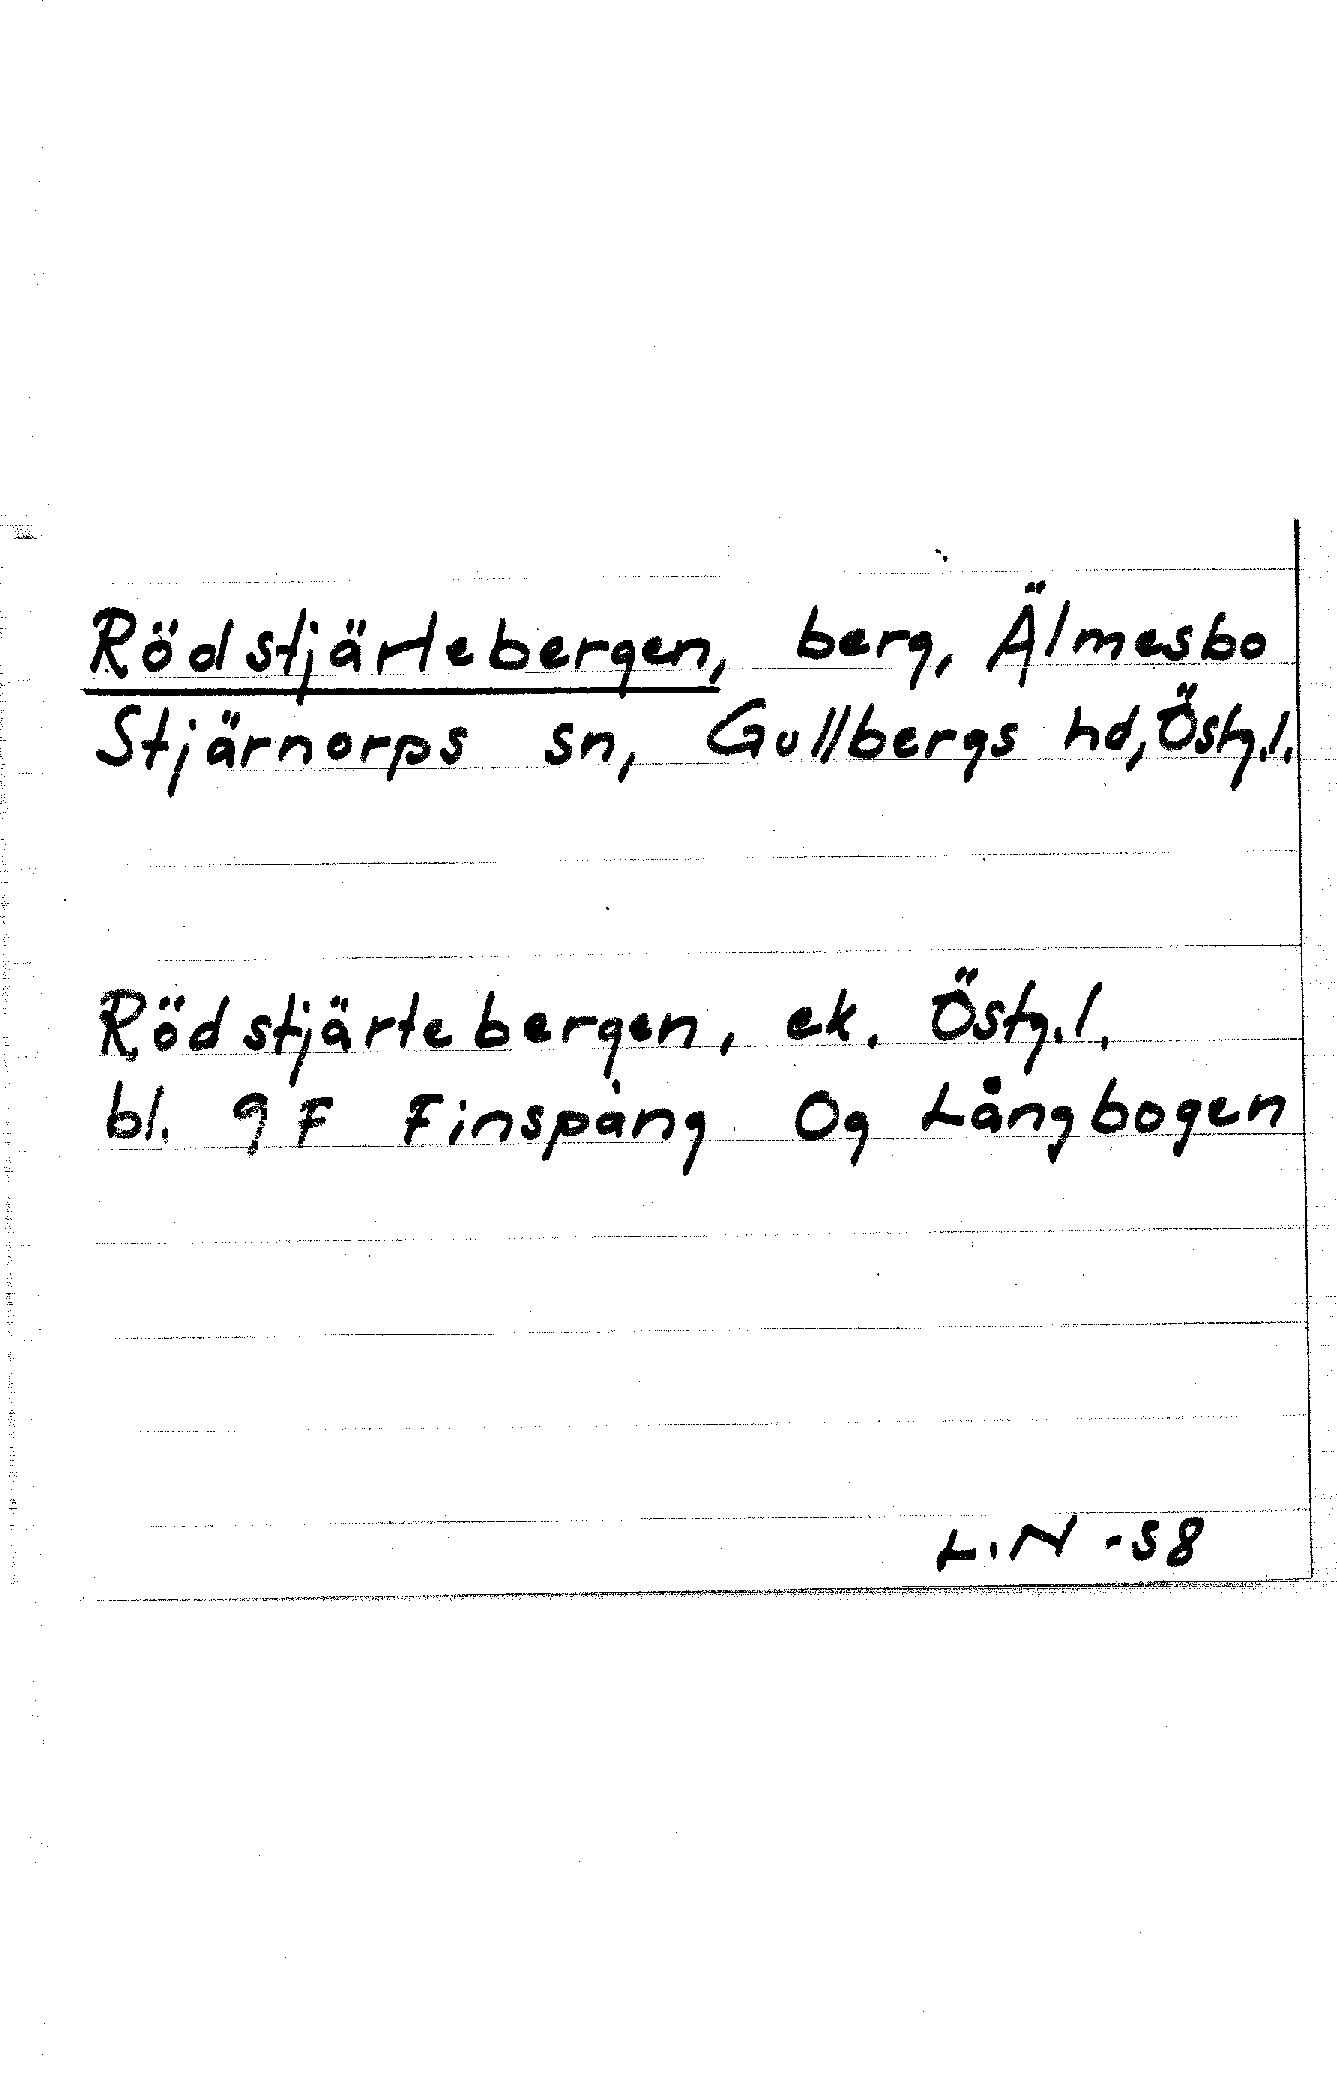 Rödstjärtebergen, berg, Älmesbo
Stjärnorps sn, Gullbergs hd, Östg.l.
Rödstjärtebergen, ek. Östg.l.
bl. 9F Finspång 0g Långbogen
L.N -58